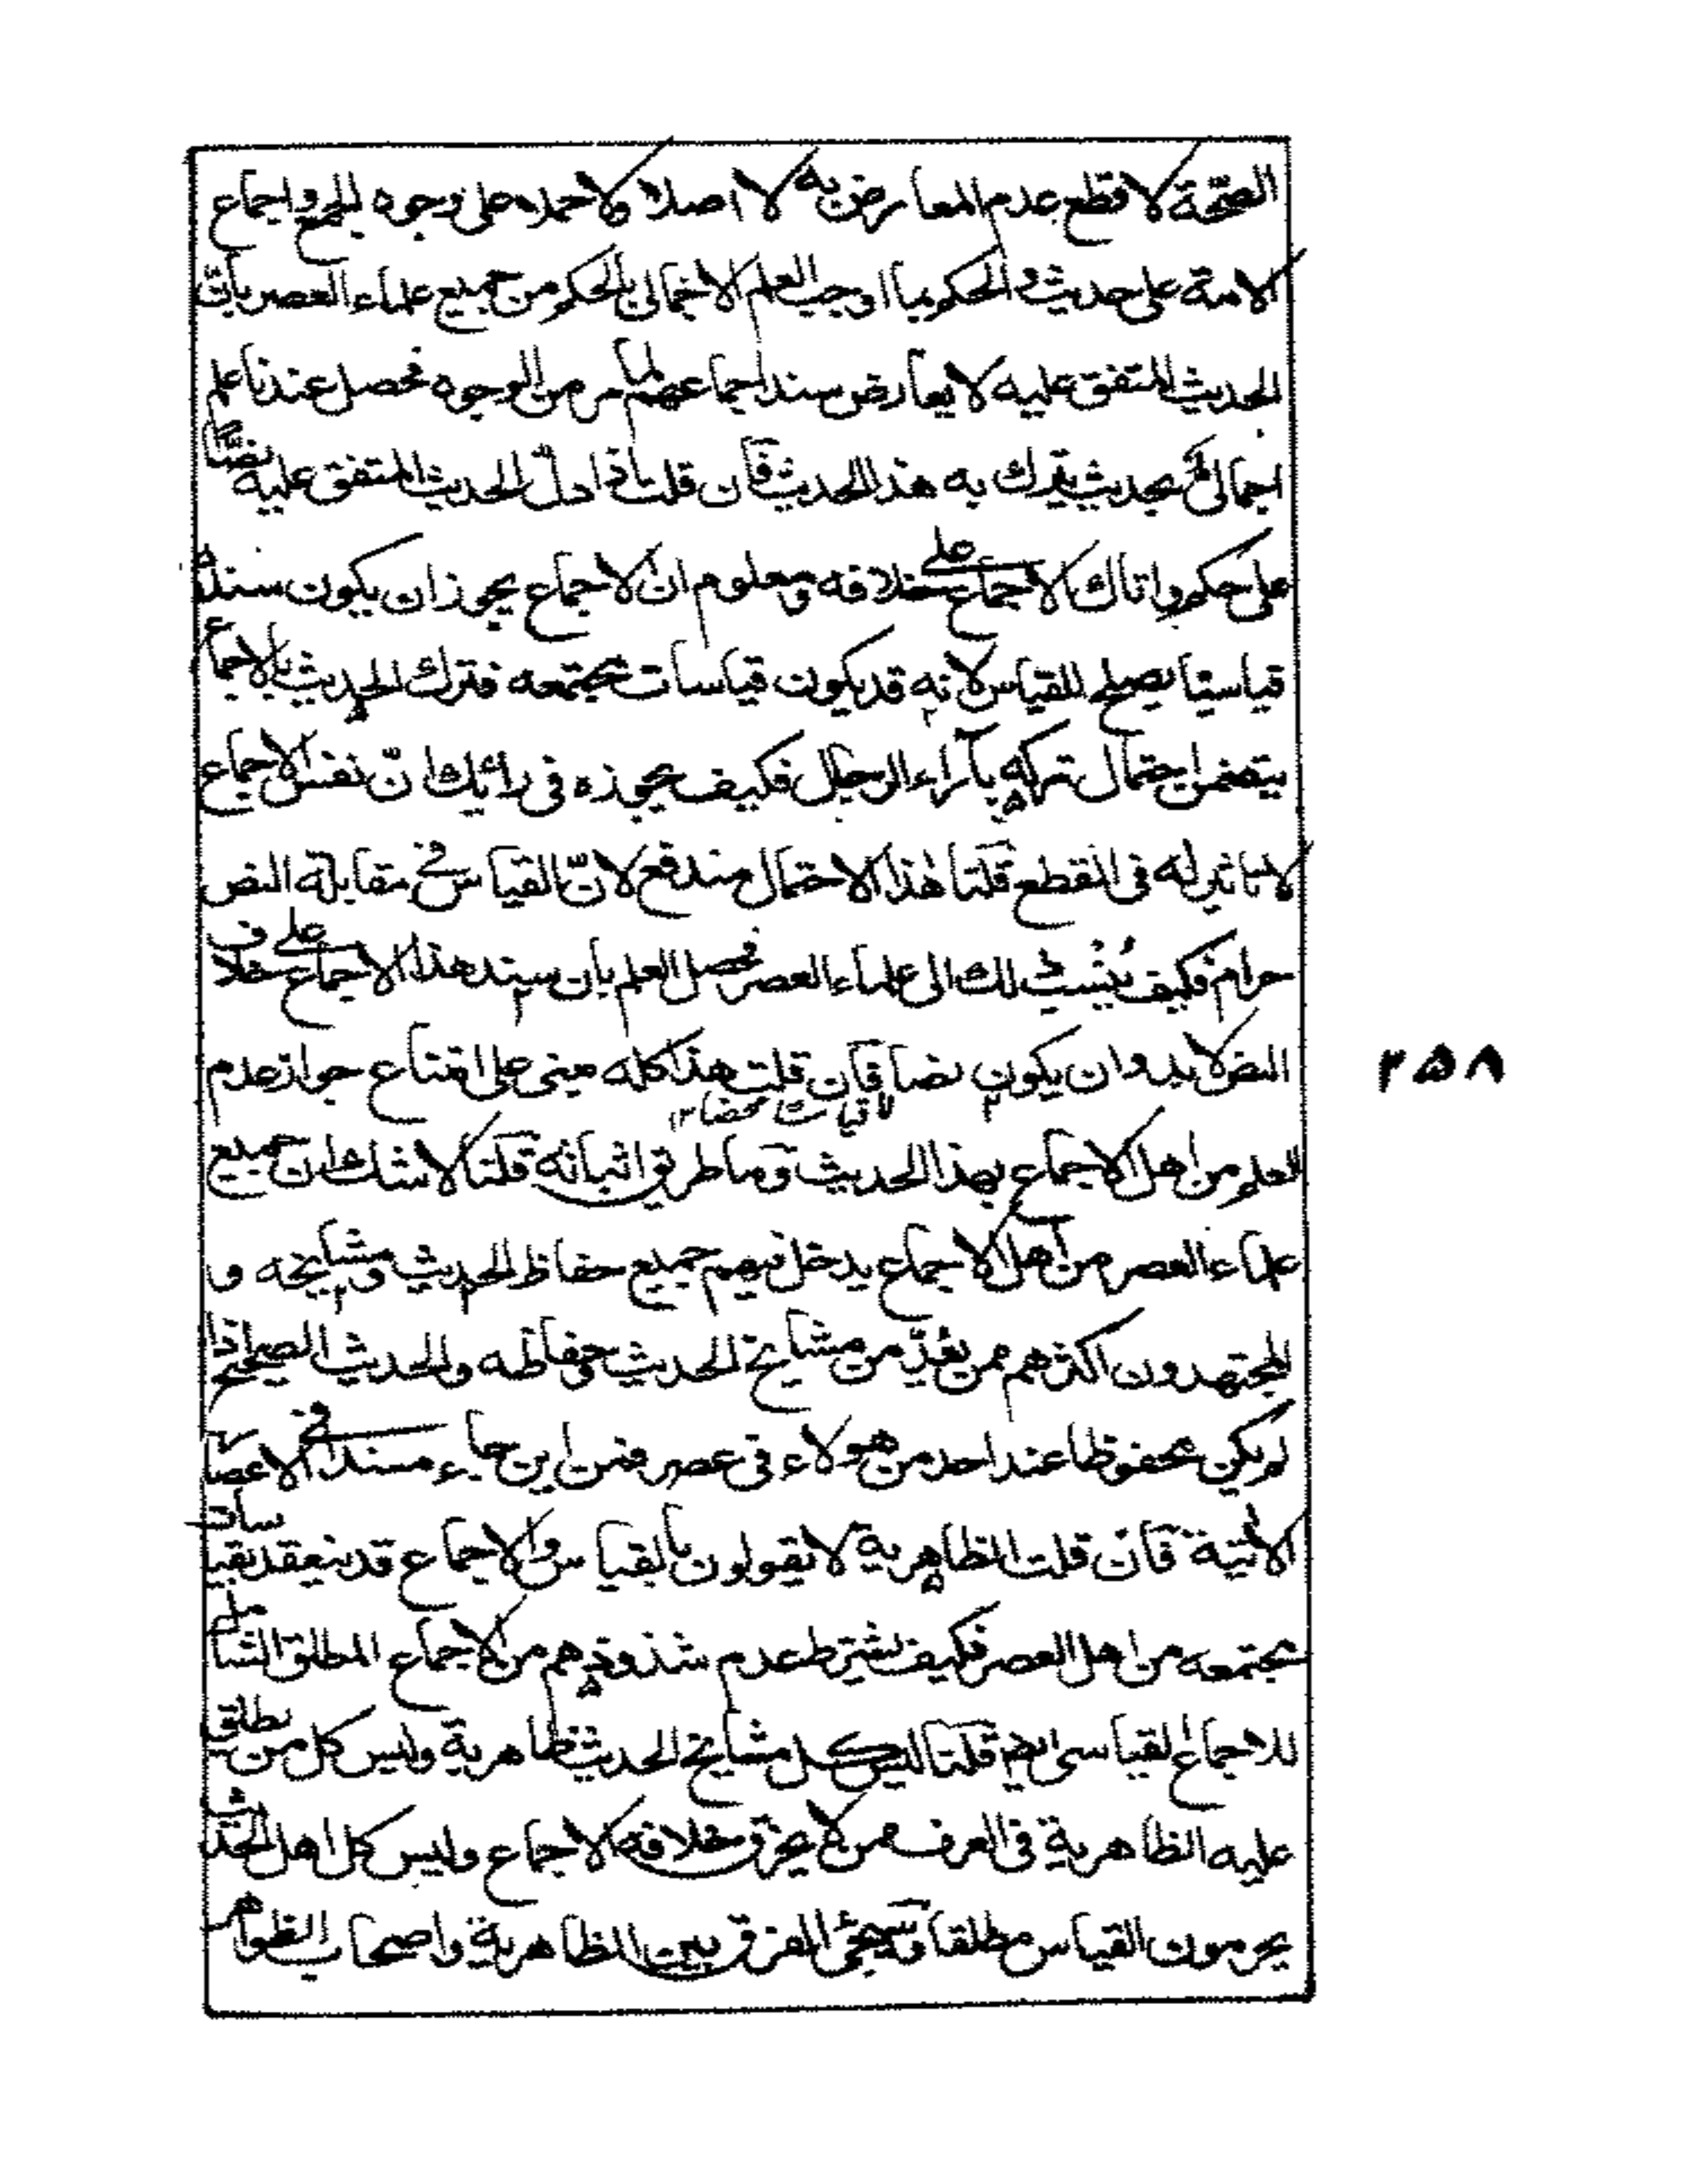 الصحّة لا قطع بعدم المعارض به لا اصلا ولا حملا على وجوه الجمع واجماع
الامة على حديث والحكم بما اوجب العلم الاجمالى بالحكم من جميع علماء العصر بانّ
الحديث المتفق عليه لا يعارض سند اجماعهم لما مر من الوجوه فحصل عندنا علم
اجمالى بحديث يترك به هذا الحديث فآن قلت اذا دلّ الحديث المتفق عليه نصًّا
على حكم واتاك الاجماع على خلافه ومعلوم ان الاجماع يجوز ان يكون سنده
قياسيّا يصلح للقياس لانه قد يكون قياسات مجتمعه فترك الحديث بالاجماع
يتضمن احتمال تركه بآراء الرجال فكيف يجوزه فى رائيك انّ نفس الاجماع
لا تاثير له فى القطع قلنا هذا الاحتمال مندفع لانّ القياس فى مقابلة النص
حرام فكيف يُنسب ذلك الى علماء العصر فحصل العلم بان سند هذا الاجماع على خلاف
النص لا بد وان يكون نصا فآن قلت هذا كله مبنى على امتناع جواز عدم
لا قياسات محضا ١٢
العلم من اهل الاجماع بهذا الحديث وما طريق اثباته قلنا لا شك ان جميع
علماء العصر من اهل الاجماع يدخل فيهم جميع حفاظ الحديث ومشايخه و
المجتهدون اكثرهم ممن يعدّ من مشايخ الحديث وحفاظه والحديث الصحيح اذا
لم يكن محفوظا عند احد من هولاء فى عصر فمن اين جاء مسندا فى الاعصار
الآتية فآن قلت الظاهرية لا يقولون بالقياس والاجماع قد ينعقد بقياسات
مجتمعه من اهل العصر فكيف نشترط عدم شذوذهم من الاجماع المطلق الشامل
للاجماع القياسى ايضا قلنا ليس كل مشايخ الحديث ظاهرية وليس كل من يطلق
عليه الظاهرية فى العرف ممن لا يخرق خلافه الاجماع وليس كل اهل الحديث
يحرمون القياس مطلقا وسيجئ الفرق بين الظاهرية واصحاب الظواهر
٢٥٨